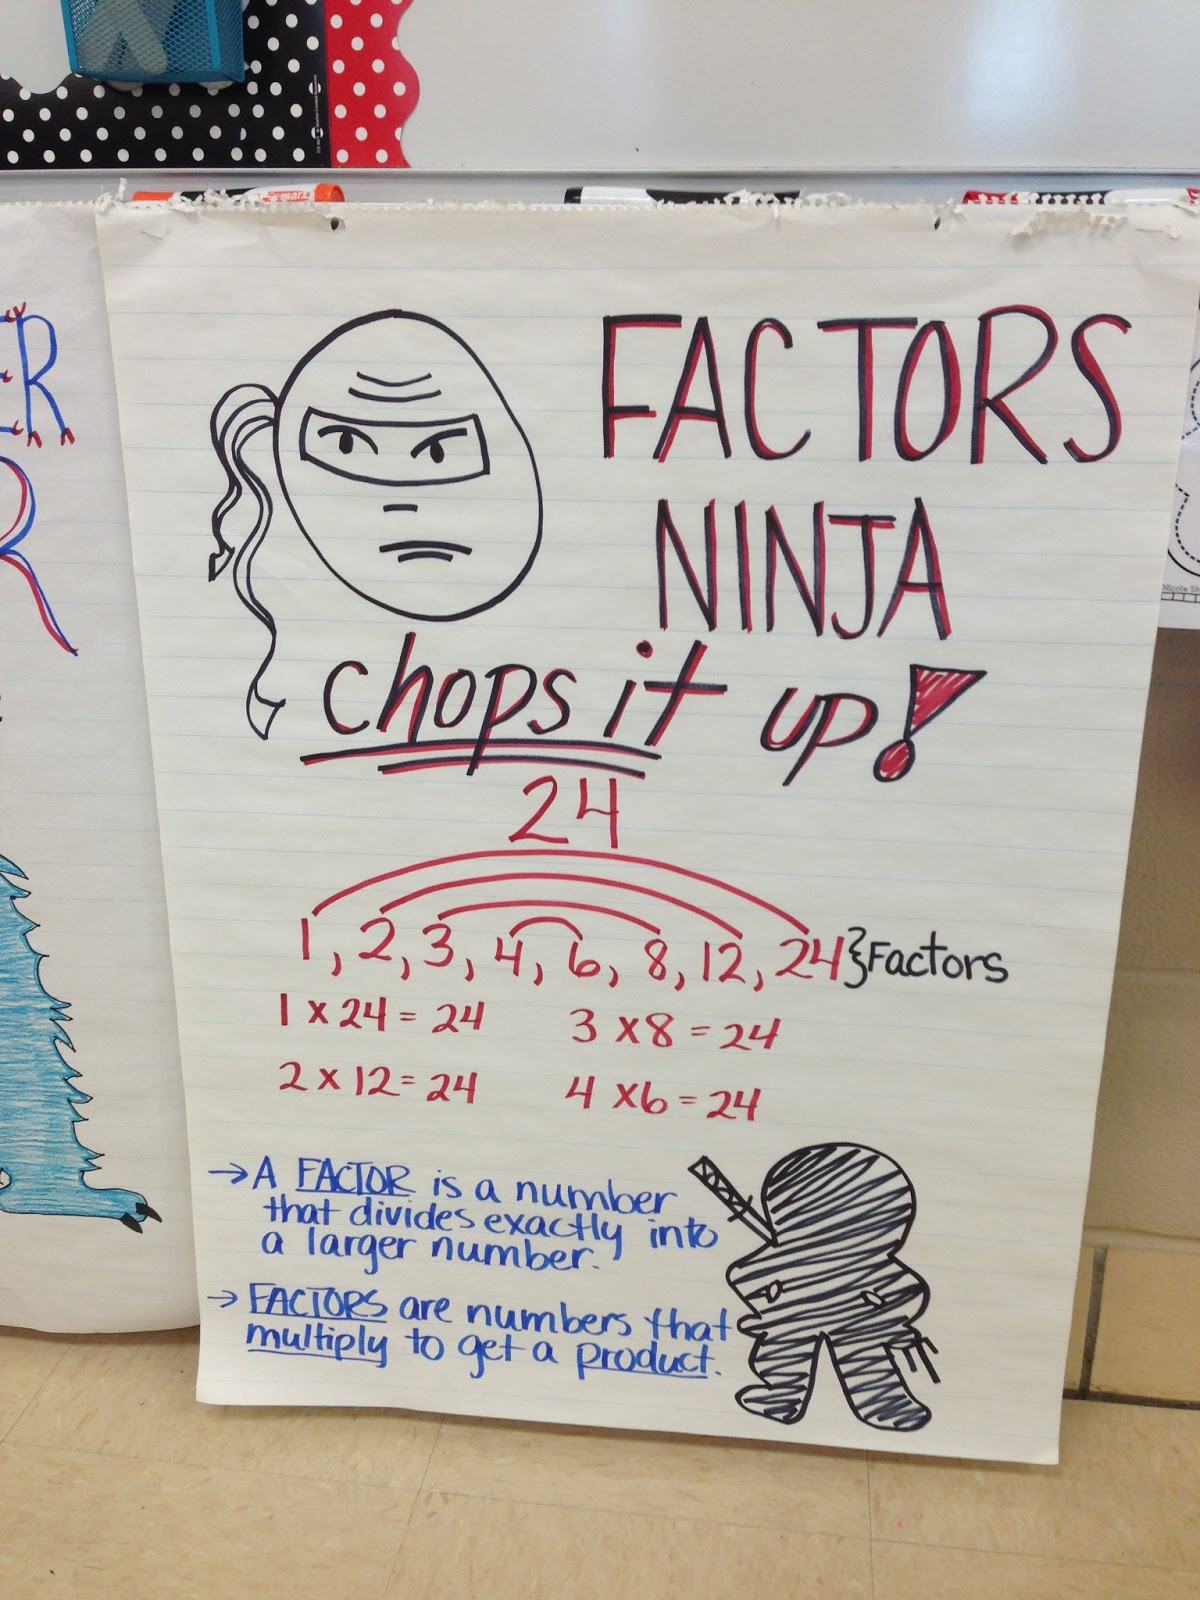 FACTORS
NINJA
chops it up!
24
1, 2, 3, 4, 6, 8, 12, 24 } Factors
1 x 24 = 24 3 x 8 = 24
2 x 12 = 24 4 x 6 = 24
→ A FACTOR is a number
that divides exactly into
a larger number.
→ FACTORS are numbers that
multiply to get a product.
ER
R
Nicole Sh